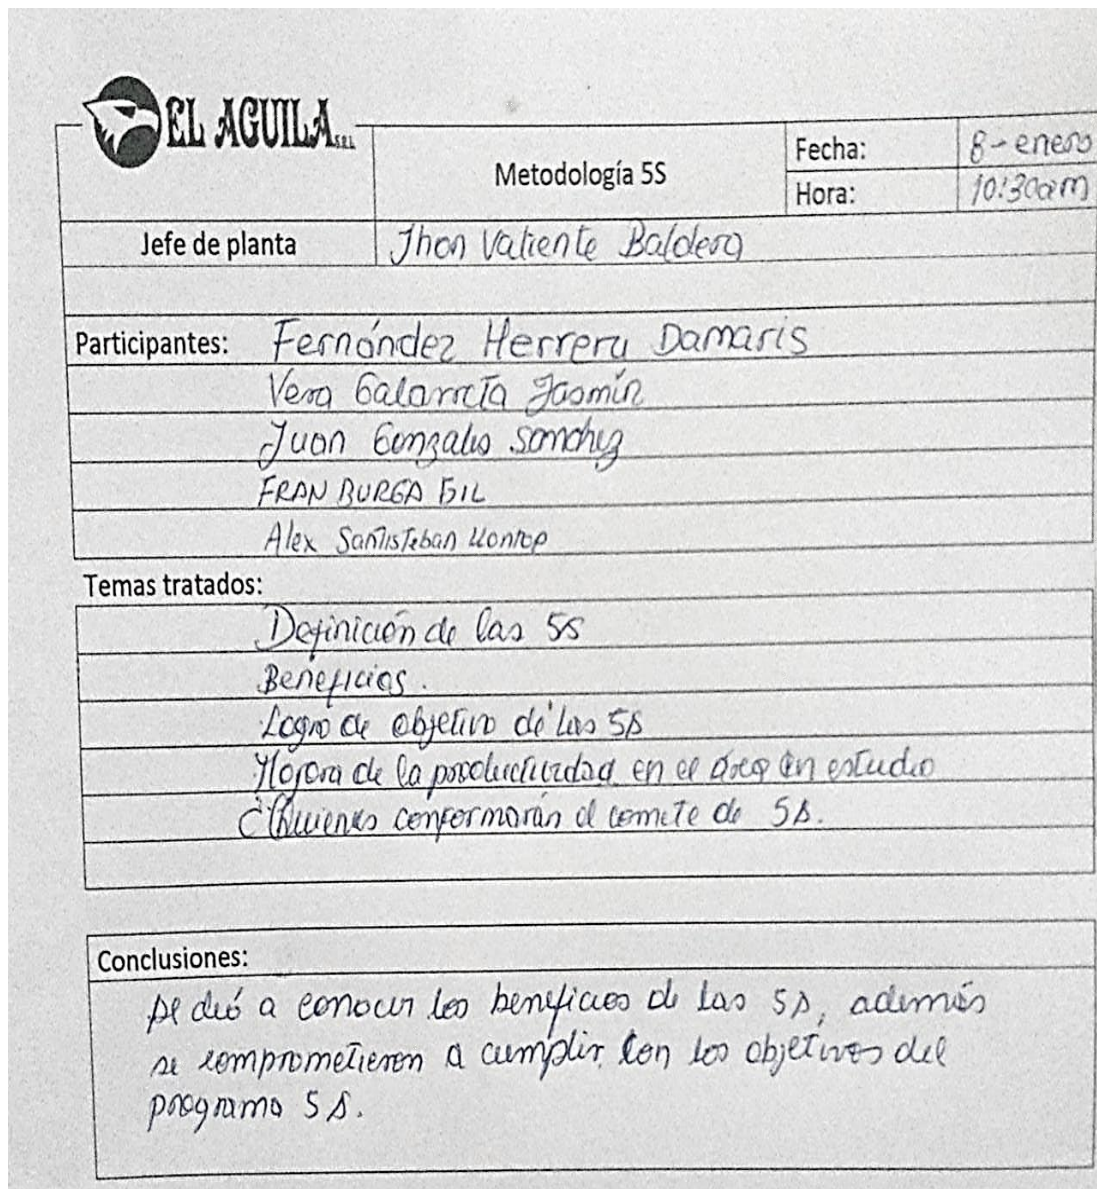 EL AGUILA S.R.L
Metodología 5S
Fecha: 8-enero
Hora: 10:30am
Jefe de planta Jhon Valiente Baldera
Participantes: Fernández Herrera Damaris
Vera Galarreta Jasmín
Juan Gonzales Sanchez
FRAN BURGA GIL
Alex Santisteban Llontop
Temas tratados:
Definición de las 5S
Beneficios.
Logro de objetivo de las 5S
Mejora de la productividad en el área en estudio
¿Quienes conformarán el comite de 5S.
Conclusiones:
se dió a conocer los beneficios de las 5S, además
se comprometieron a cumplir con los objetivos del
programa 5S.